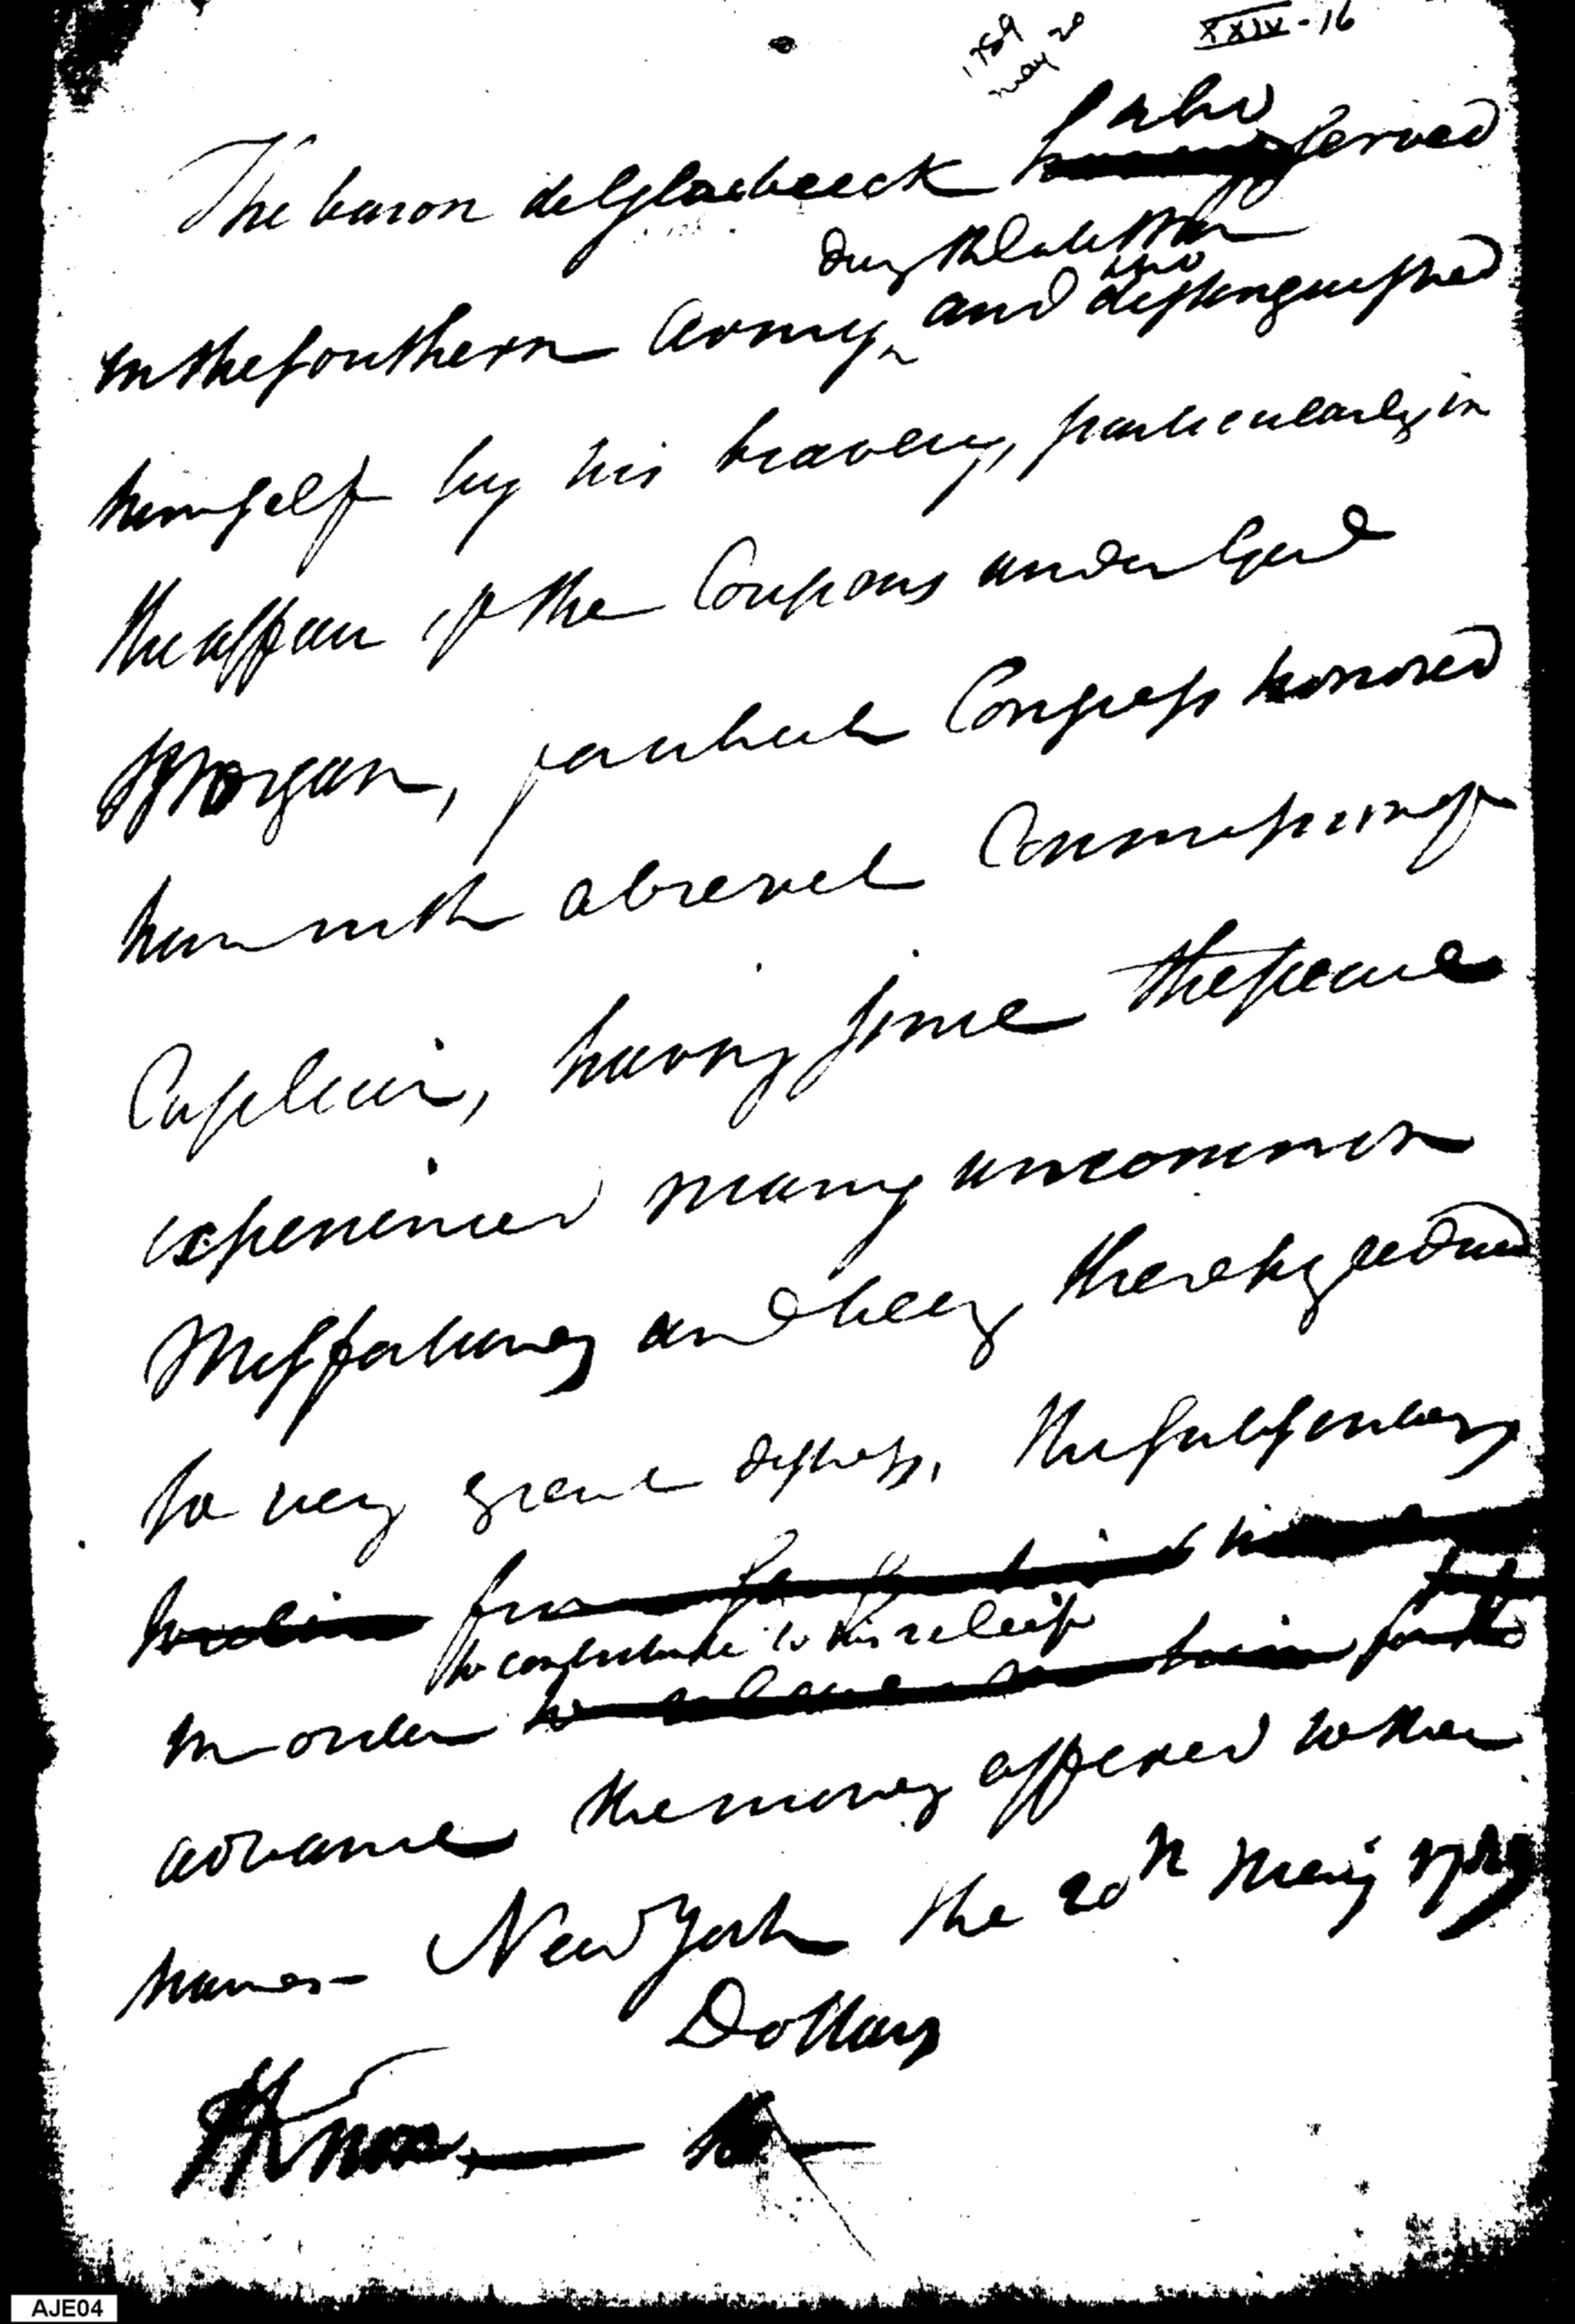 XXIV-16
1789 May 20
who
The baron de Glaubeeck having served
during the late war
in the southern Army, and who distinguished
himself by his bravery, particularly in
the affair of the Coupens under Genl
Morgan, for which Congress honored
him with a brevet Commission of
Captain, having since the peace
experienced many uncommon
Misfortunes and being thereby reduced
to very great distress, the subscribers
to contribute to his relief
in order for the
advance the money affixed to their
names — New York the 20th May 1789
Dollars
HKnox
AJE04